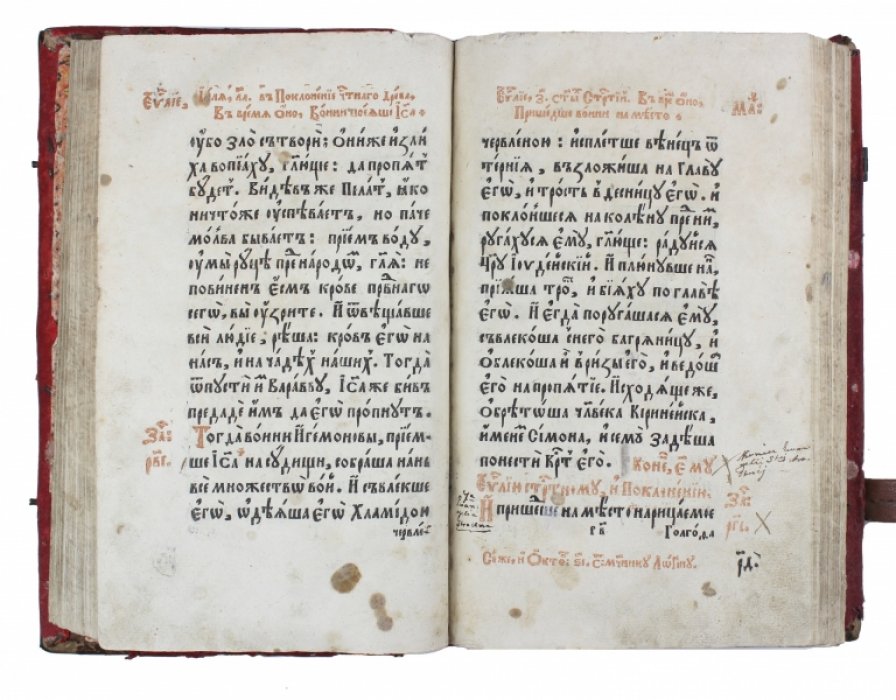 Еѵⷢ҇лїе, въ Поклоненїе чтⷭ҇наго Древа,
Въ время Оно, Воини поемше І҆са
ѹбо зло сътвори; Они же изли
ха вопїахꙋ, глⷧ҇юще: да пропѧтъ
бꙋдетъ. Видѣвъ же Пилатъ, ꙗко
ничтоже ѹспѣваетъ, но паче
молва бываетъ: прїемъ водꙋ,
ѹмы рꙋцѣ прⷣе народѡⷨ, глⷧ҇ѧ: не
повиненъ есмъ крове првⷣнагѡ
сегѡ, вы ѹзрите. И ѿвѣщавше
вси людїе, рѣша: кровъ егѡ на
насъ, и на чадѣⷯ нашиⷯ. Тогда
ѿпꙋсти иⷨ Вараввꙋ, І҆са же бивъ
предаде имъ да егѡ пропнꙋтъ.
Заⷱ҇:
Тогда воини Игемоновы, прїем-
ше І҆са на сꙋдищи, собраша нань
все множествѡ вои. И съвлекше
егѡ, ѡдѣѧша егѡ Хламидою
червле-
Еѵⷢ҇лїе, З҃. стыⷯ Стртⷭ҇їи. Въ врⷨе Оно,
Пришедше воини на мѣсто
МА:
червленою: и сплетше вѣнецъ ѿ
тернїѧ, възложиша на Главꙋ
Егѡ, и трость в десницꙋ Егѡ. и
поклоншесѧ на колѣнꙋ преⷣ ниⷨ,
рꙋгахꙋсѧ Емꙋ, глⷧ҇юще: радꙋисѧ
Црⷭ҇ю Іꙋдейскїй. И плюнꙋвше наⷩ,
прїѧша тросⷮ, и бїѧхꙋ по главѣ
Егѡ. И Егда порꙋгашасѧ Емꙋ,
съвлекоша с него багрѧницꙋ, и
ѡблекоша и в ризы его, и ведошⷶ
Его на пропѧтїе. Исходѧще же,
ѡбрѣтоша члⷡ҇ека Киринейска,
именеⷨ Сімона, и семꙋ Задѣша
понести Крⷭ҇тъ Его. Конеⷰ, Емꙋ
Еѵⷢ҇лїю стртⷭ҇номꙋ, и Поклоненїю.
Заⷱ҇:
И пришеⷣше на мѣсто нарицаемое
Голгоѳа
Сїе же, и Октоⷨ: Логгинꙋ.